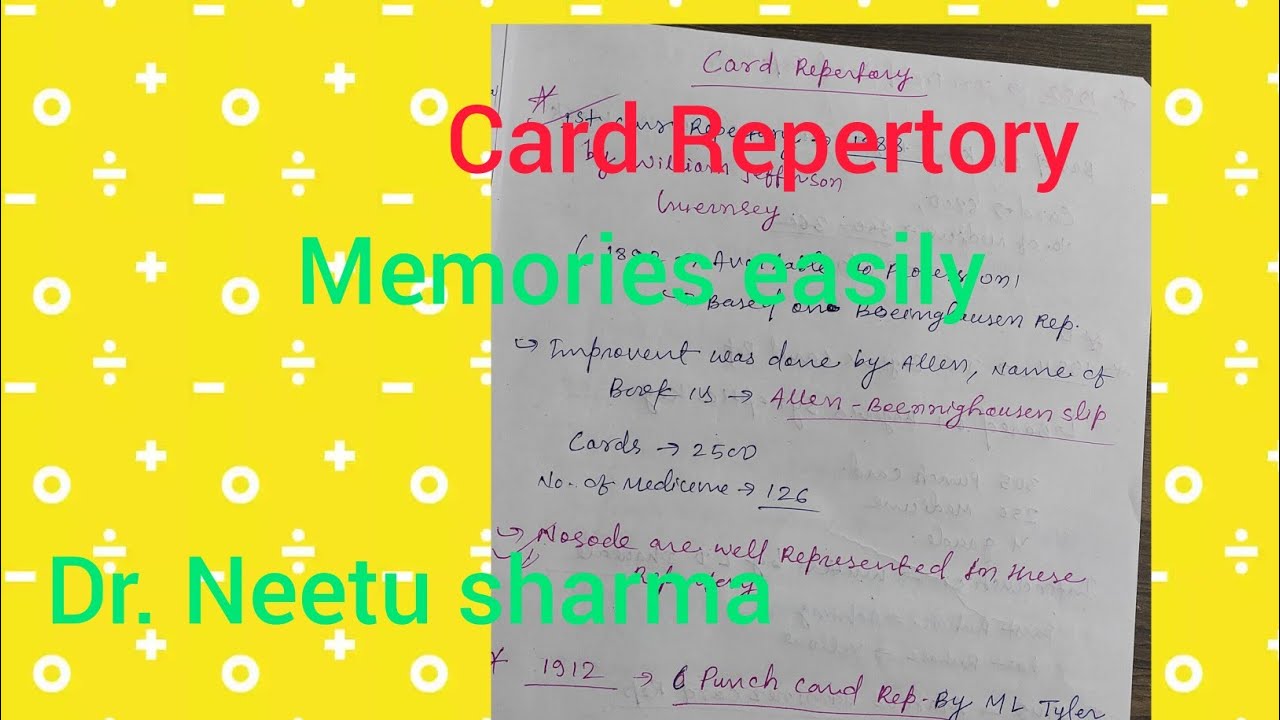 Card Repertory
1st Repertory → 1888
by William Jefferson
Guernsey.
Card Repertory
( 1892 → Available to Profession,
Memories easily
↳ Based on Boeninghausen Rep.
↪ Improvent was done by Allen, Name of
Book is → Allen-Boenninghausen slip
Cards → 2500
No. of Mediceme → 126
↪ Nosode are well Represented in these
Repertory
Dr. Neetu sharma
* 1912 → Punch card Rep. By ML Tyler